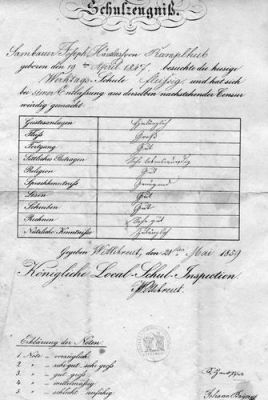 Schulzeugniß.
Joseph
geboren den 19ten April 1847, besuchte die hiesige
Werktags-Schule fleißig und hat sich
bei seiner Entlassung aus derselben nachstehender Censur
würdig gemacht
Geistesanlagen
Fleiß Groß
Fortgang Gut
Sittliches Betragen Sehr lobenswürdig
Religion Gut
Sprachkenntniß Genügend
Lesen Gut
Schreiben Gut
Rechnen Sehr gut
Nützliche Kenntniße
Gegeben Wittibreut, den Mai 1859
Königliche Local-Schul-Inspection
Wittibreut
Erklärung der Noten
1 Note = vorzüglich
2 " = sehr gut, sehr groß
3 " = gut, groß
4 " = mittelmäßig
5 " = schlecht